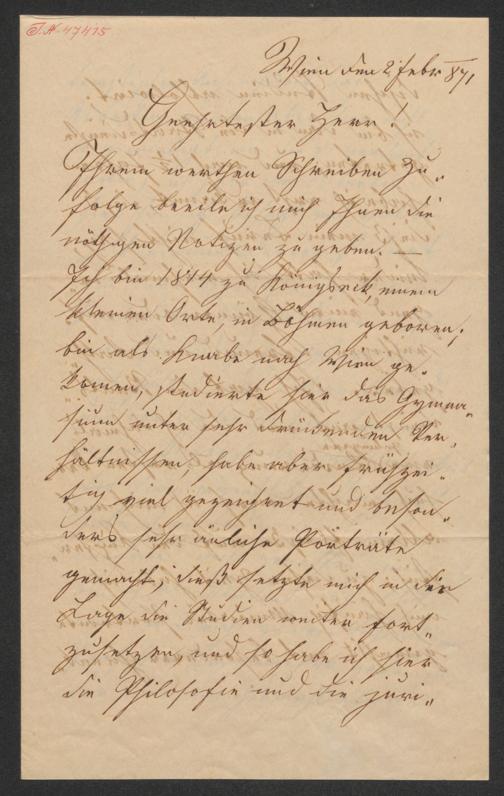 I.N. 47415
Wien den 2 Febr 871
Geehrtester Herr!
Ihrem werthen Schreiben zu-
folge beeile ich mich Ihnen die
nöthigen Notizen zu geben. —
Ich bin 1844 zu Königseck einem
kleinen Orte, in Böhmen geboren,
bin als Knabe nach Wien ge-
komen, studierte hier das Gymna-
sium unter sehr drückenden Ver-
hältnissen, habe aber frühzei-
tig viel gezeichnet und beson-
ders sehr änliche Porträte
gemacht, dieß setzte mich in die
Lage die Studien weiter fort-
zusetzen, und so habe ich hier
die Philosofie und die juri-